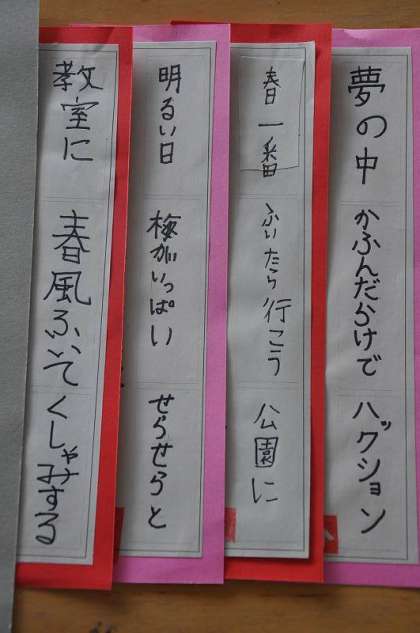 夢の中 かふんだらけで ハックション
春一番 ふいたら行こう 公園に
明るい日 梅がいっぱい せらせらと
教室に 春風ふいて くしゃみする